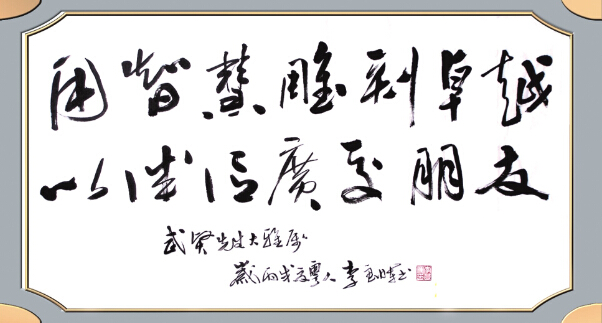 用智慧雕刻卓越
以诚信廣交朋友
武贤先生大雅属
歲丙戌粤人李书